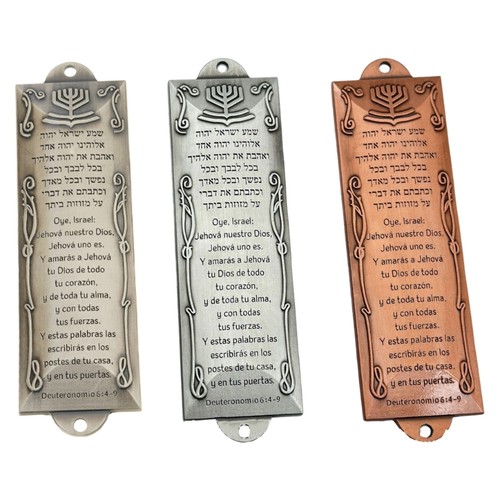 שמע ישראל יהוה
אלוהינו יהוה אחד
ואהבת את יהוה אלהיך
בכל לבבך ובכל
נפשך ובכל מאדך
וכתבתם את דברי
על מזוזות ביתך
Oye, Israel:
Jehová nuestro Dios,
Jehová uno es.
Y amarás a Jehová
tu Dios de todo
tu corazón,
y de toda tu alma,
y con todas
tus fuerzas.
Y estas palabras las
escribirás en los
postes de tu casa,
y en tus puertas.
Deuteronomio 6:4-9
שמע ישראל יהוה
אלוהינו יהוה אחד
ואהבת את יהוה אלהיך
בכל לבבך ובכל
נפשך ובכל מאדך
וכתבתם את דברי
על מזוזות ביתך
Oye, Israel:
Jehová nuestro Dios,
Jehová uno es.
Y amarás a Jehová
tu Dios de todo
tu corazón,
y de toda tu alma,
y con todas
tus fuerzas.
Y estas palabras las
escribirás en los
postes de tu casa,
y en tus puertas.
Deuteronomio 6:4-9
שמע ישראל יהוה
אלוהינו יהוה אחד
ואהבת את יהוה אלהיך
בכל לבבך ובכל
נפשך ובכל מאדך
וכתבתם את דברי
על מזוזות ביתך
Oye, Israel:
Jehová nuestro Dios,
Jehová uno es.
Y amarás a Jehová
tu Dios de todo
tu corazón,
y de toda tu alma,
y con todas
tus fuerzas.
Y estas palabras las
escribirás en los
postes de tu casa,
y en tus puertas.
Deuteronomio 6:4-9